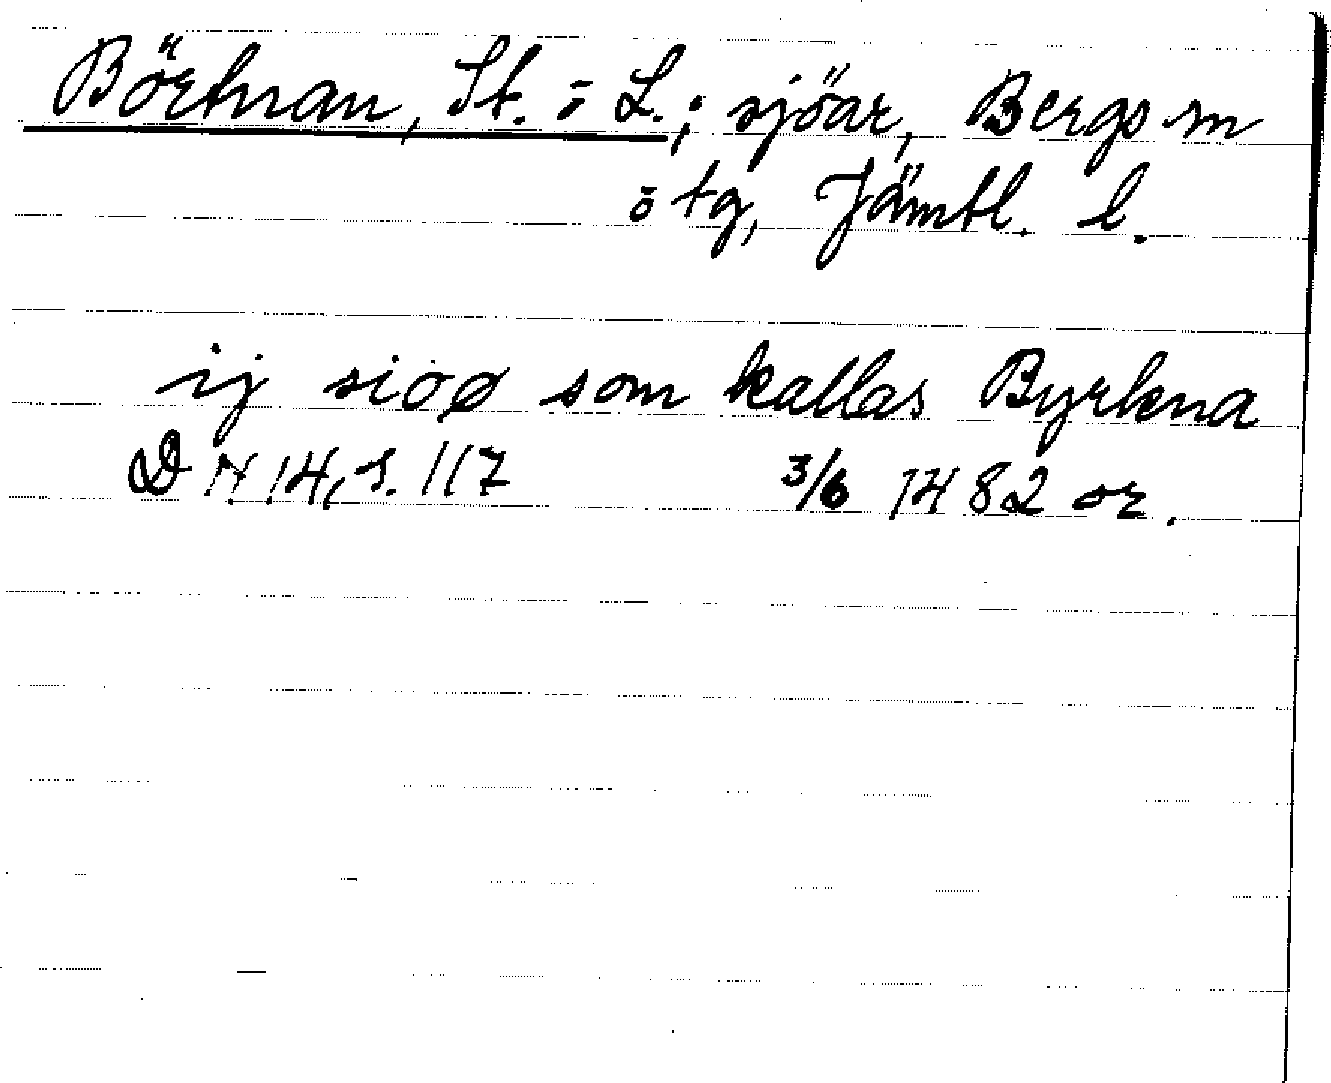 Börtnan, St. o L.; sjöar, Bergs sn
o tg, Jämtl. l.
ij siöø som kallas Byrkna
DN 14, s. 117 3/6 1482 or.